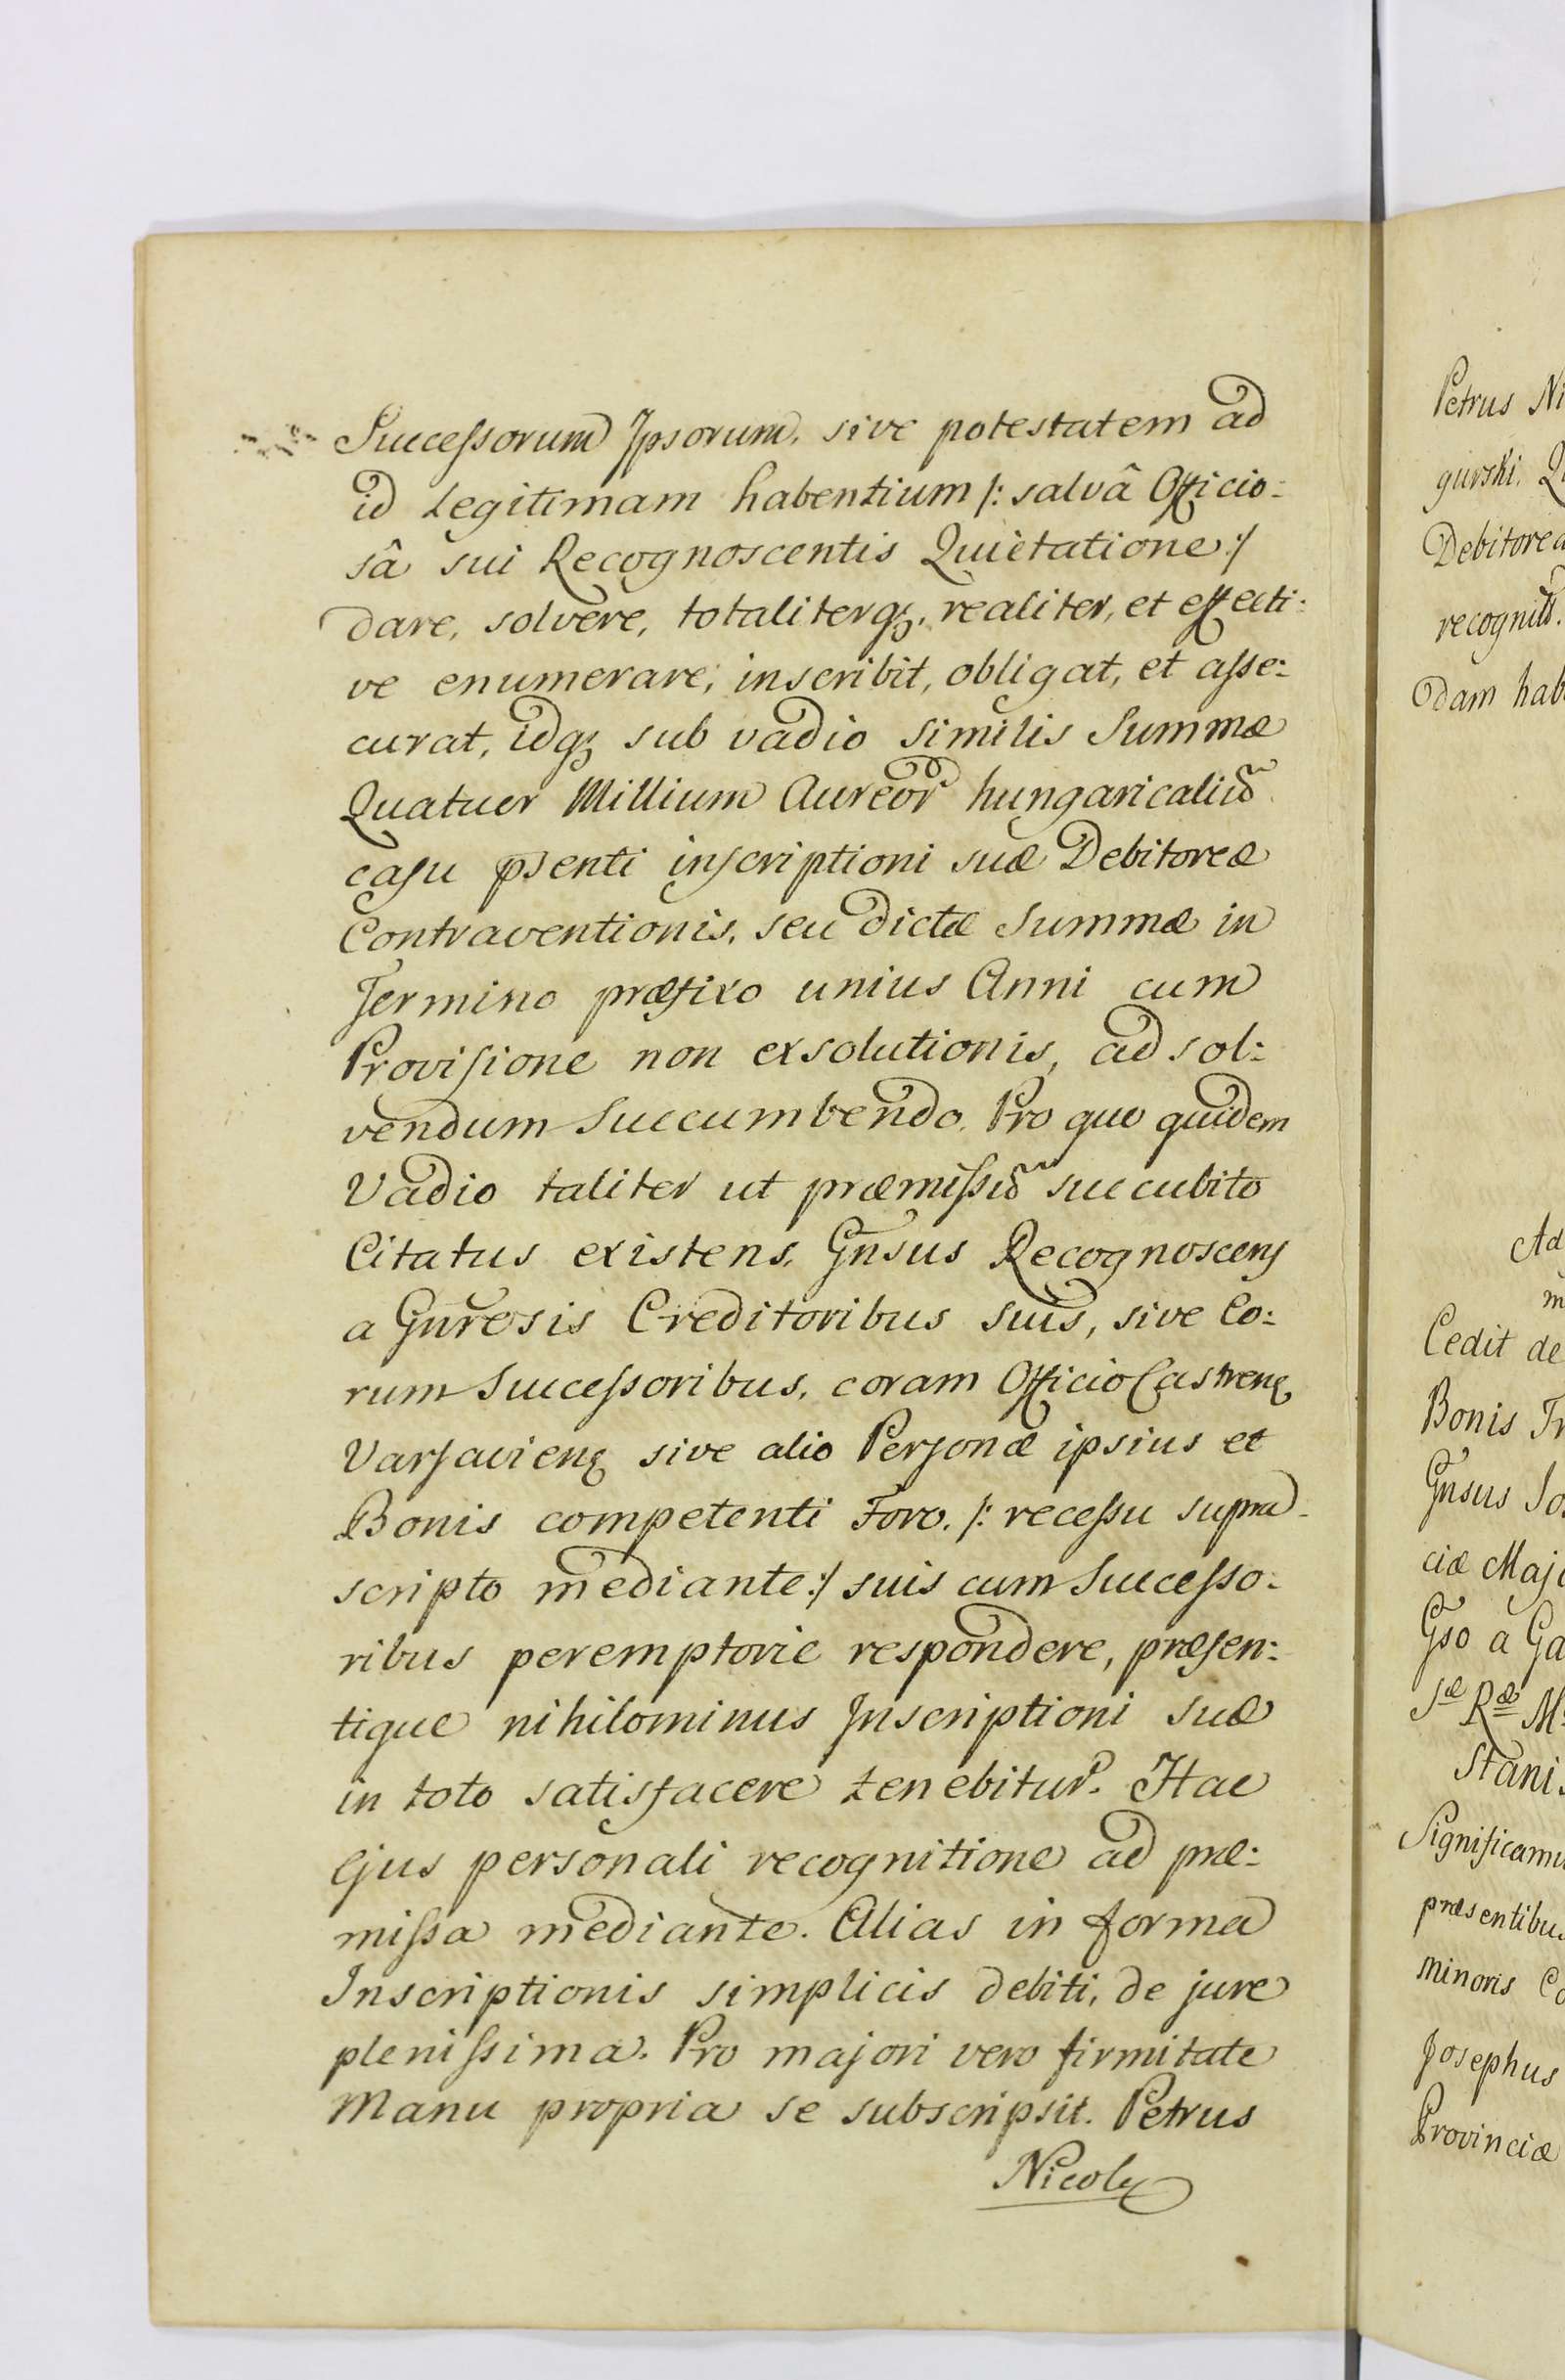 Successorum Ipsorum, sive potestatem ad
id Legitimam habentium /: salvâ Officio:
sâ sui Recognoscentis Quietatione :/
dare, solvere, totaliterq₃, realiter, et effecti:
ve enumerare, inscribit, obligat, et asse:
curat, idq₃ sub vadio similis Summæ
Quatuor Millium Aureor̃ hungaricaliũ
casu p̄senti inscriptioni suæ Debitoreæ
Contraventionis, seu dictæ Summæ in
Termino præfixo unius Anni cum
Provisione non exsolutionis, ad sol:
vendum Succumbendo. Pro quo quidem
Vadio taliter ut præmissũ succubito
Citatus existens, Gñsus Recognoscens
a Gñrosis Creditoribus suis, sive Eo:
rum Successoribus, coram Officio Castrenȩ
Varsavienȩ sive alio Personæ ipsius et
Bonis competenti Foro, /: recessu supra
scripto mediante :/ suis cum Successo:
ribus peremptorie respondere, præsen:
tique nihilominus Inscriptioni suæ
in toto satisfacere tenebitur. Hac
ejus personali recognitione ad præ:
missa mediante. Alias in forma
Inscriptionis simplicis debiti, de jure
plenissima. Pro majori vero firmitate
Manu propria se subscripsit. Petrus
Nicol
Petrus Ni
gurski. Q
Debitorea
recognit
dam hab
Ad
m
Cedit de
Bonis Tr
Gñsus Jo
ciæ Maj
Gso a Ga
Sæ Ræ M
Stani
Significamu
præsentibu
minoris Co
Josephus
Provinciæ